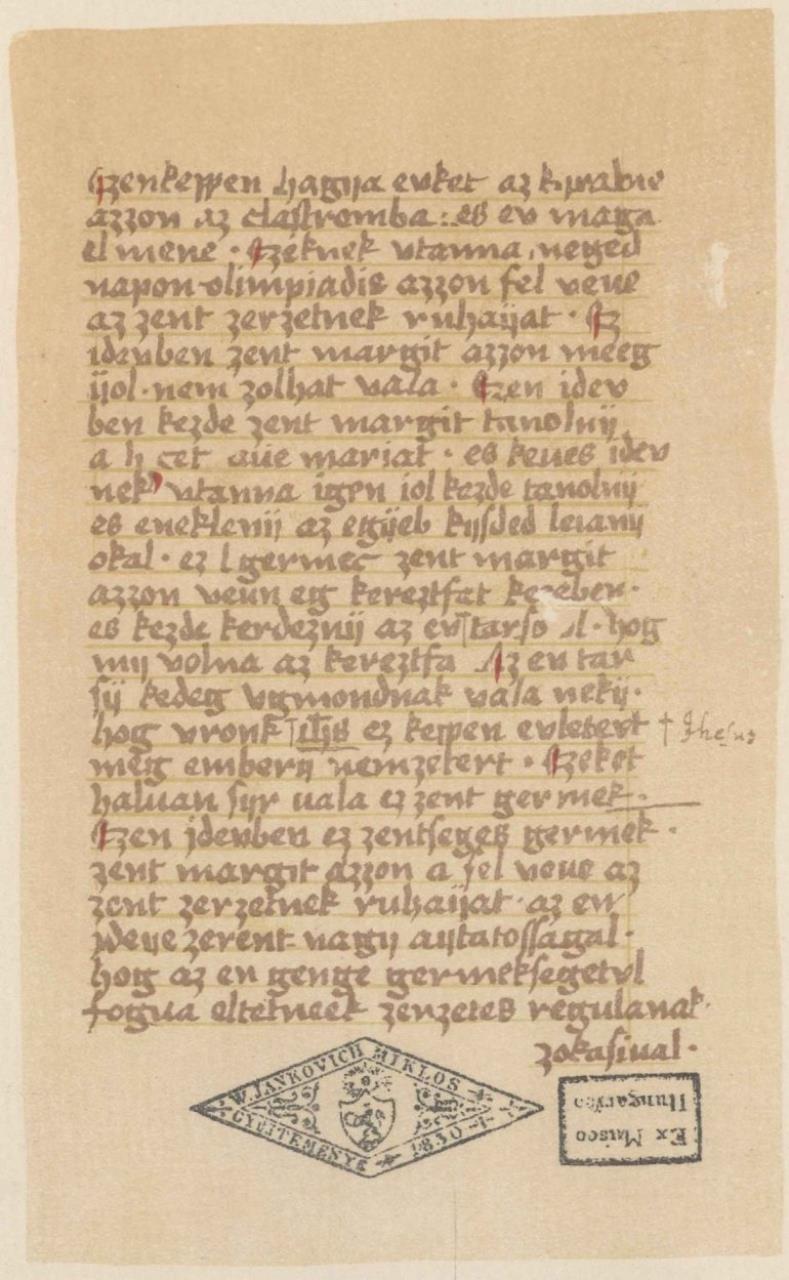 Ezenkeppen hagya evket az kyralne
azzon az clastromba: es ev maga
el mene · Ezeknek vtanna neged
napon olimpiadis azzon fel veue
az zent zerzetnek ruhaÿat · Ez
idevben zent margit azzon meeg
ÿol · nem zolhat vala · Ezen idev
ben kezde zent margit tanolnÿ
a b cet aue mariat · es keues idev
nek vtanna igen iol kezde tanolnÿ
es eneklenÿ az egÿeb kÿsded leianÿ
okal · ez germec zent margit
azzon veun eg kereztfat kezeben ·
es kezde kerdeznÿ az ev tarsÿ · hog
mÿ volna az kereztfa Az ev tar
sÿ kedeg vgmondnak vala nekÿ ·
hog vronk Ihs ez keppen evletett † Ihesus
meg emberÿ nemzetert · Ezeket
haluan sÿr uala ez zent germek ·
Ezen jdevben ez zentseges germek ·
zent margit azzon a fel veue az
zent zerzetnek ruhaÿat · az ev
jdeÿe zerent nagÿ aÿtatossagal ·
hog az en genge germeksegetvl
fogua eltetneek zerzetes regulanak
zokasiual ·
W. JANKOVICH MIKLOS
GYÜJTEMÉNYE 1830
Ex Museo
Hungarico